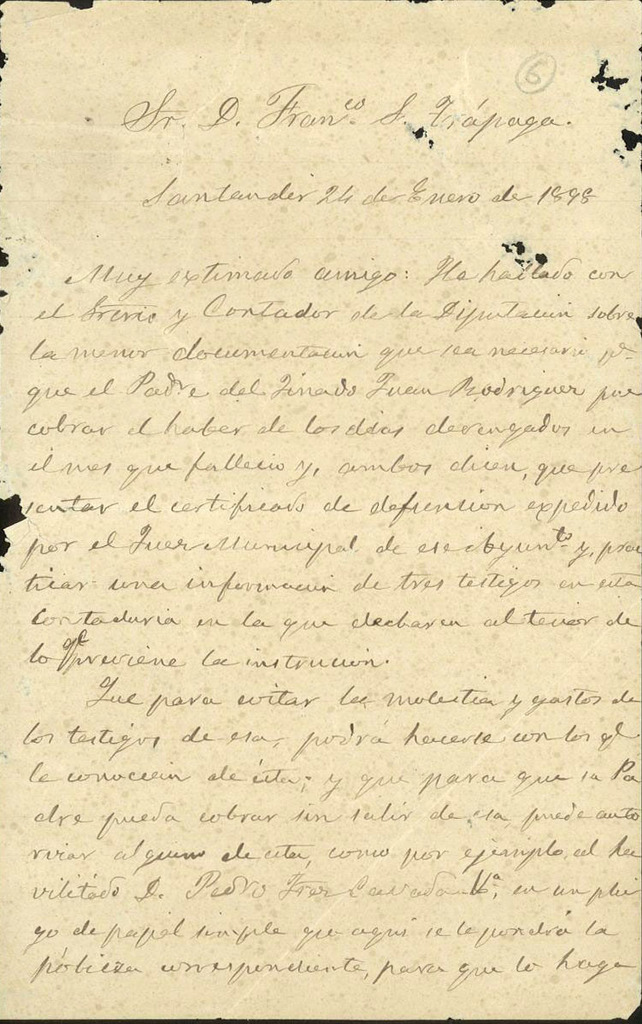 6
Sr. D. Franco. S. Trápaga.
Santander 24 de Enero de 1898
Muy extimado amigo: He hablado con
el Srerio y Contador de la Diputacion sobre
la menor documentacion que sea necesaria pa
que el Padre del Finado Juan Rodriguez pue
cobrar el haber de los dias devengados en
el mes que fallecio y, ambos dicen, que pre
sentar el certificado de defuncion expedido
por el Juez Municipal de ese Ayunto y, prac
ticar una informacion de tres testigos en esta
Contaduria en la que declaren al tenor de
lo qe previene la instrucion.
Que para evitar la molestia y gastos de
los testigos de esa, podrá hacerse con los qe
le conocien de ésta; y que para que su Pa
dre pueda cobrar sin salir de esa puede auto
rizar alguno de esta, como por ejemplo, al ha
vilitado D. Pedro Frez en un plie
go de papel simple que aqui se le pondrá la
póliza correspondiente, para que lo haga